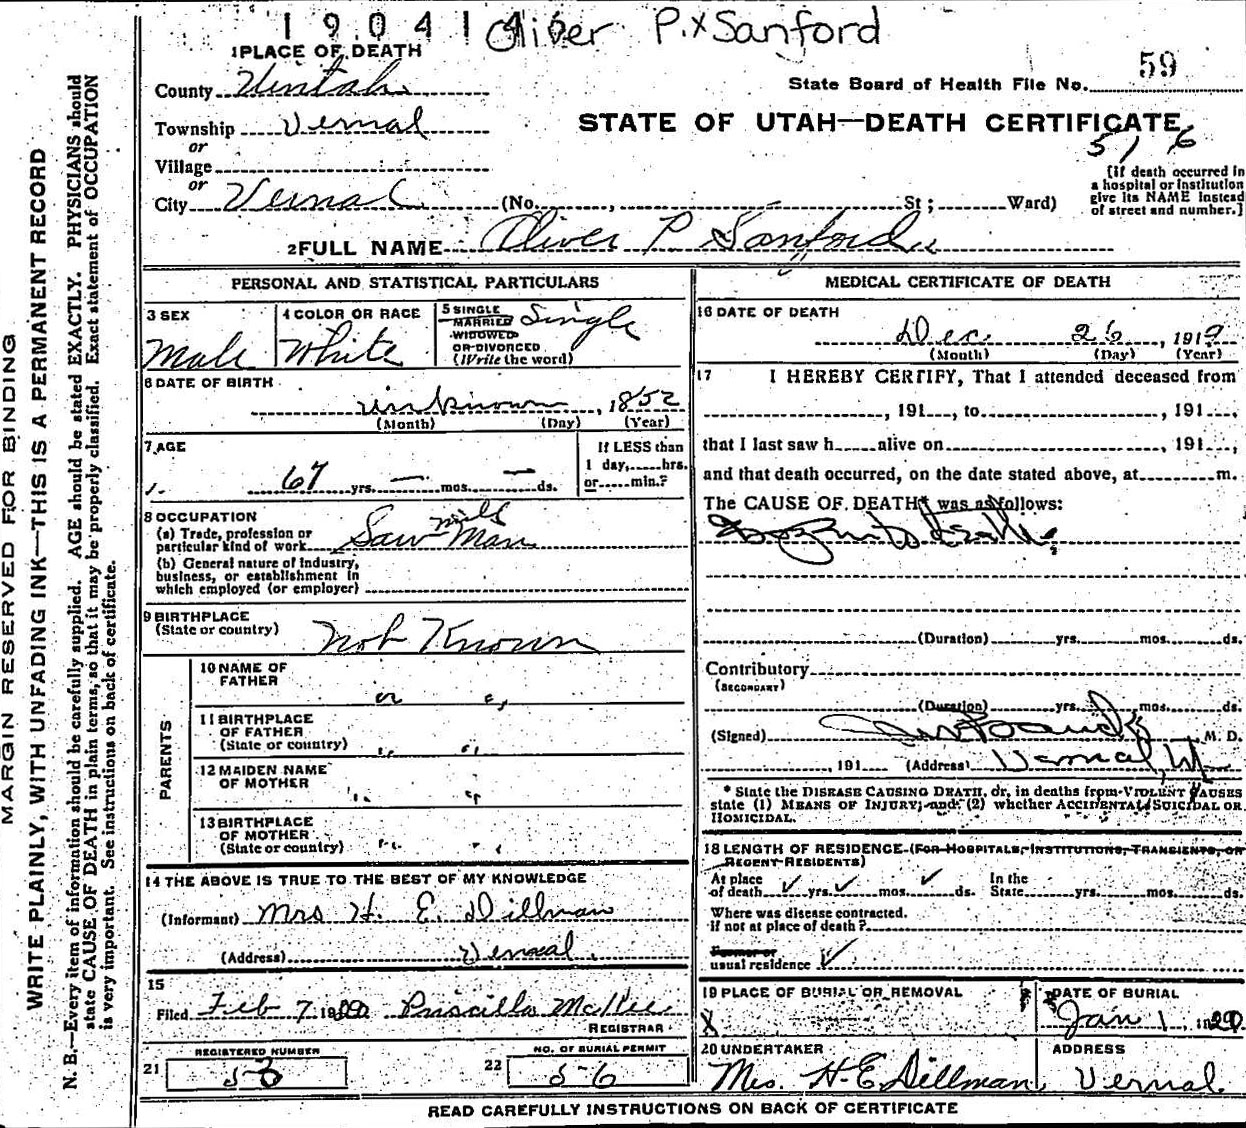 1904146 Oliver P. x Sanford
1 PLACE OF DEATH
County Uintah
State Board of Health File No. 59
Township Vernal
or
STATE OF UTAH—DEATH CERTIFICATE
Village
or
City Vernal (No. , St ; Ward)
[If death occurred in a hospital or institution give its NAME instead of street and number.]
2 FULL NAME Oliver P Sanford
PERSONAL AND STATISTICAL PARTICULARS
3 SEX
Male
4 COLOR OR RACE
White
5 SINGLE
MARRIED
WIDOWED
OR DIVORCED
(Write the word)
Single
6 DATE OF BIRTH
unknown , 1852
(Month) (Day) (Year)
7 AGE
67 yrs. — mos. — ds.
If LESS than
1 day, hrs.
or min.?
8 OCCUPATION
(a) Trade, profession or
particular kind of work Saw mill Man
(b) General nature of Industry,
business, or establishment in
which employed (or employer)
9 BIRTHPLACE
(State or country) Not Known
PARENTS
10 NAME OF
FATHER " "
11 BIRTHPLACE
OF FATHER
(State or country) " "
12 MAIDEN NAME
OF MOTHER " "
13 BIRTHPLACE
OF MOTHER
(State or country) " "
14 THE ABOVE IS TRUE TO THE BEST OF MY KNOWLEDGE
(Informant) Mrs H. E. Dillman
(Address) Vernal
15
Filed Feb 7 1920 Priscilla McKee
REGISTRAR
21 REGISTERED NUMBER
22 NO. OF BURIAL PERMIT
56
MEDICAL CERTIFICATE OF DEATH
16 DATE OF DEATH
Dec. 26, 1919
(Month) (Day) (Year)
17 I HEREBY CERTIFY, That I attended deceased from
, 191 , to , 191 ,
that I last saw h alive on , 191 ,
and that death occurred, on the date stated above, at m.
The CAUSE OF DEATH* was as follows:
(Duration) yrs. mos. ds.
Contributory
(SECONDARY)
(Duration) yrs. mos. ds.
(Signed) M. D.
, 191 (Address) Vernal, Ut
* State the DISEASE CAUSING DEATH, or, in deaths from VIOLENT CAUSES
state (1) MEANS OF INJURY; and (2) whether ACCIDENTAL, SUICIDAL OR
HOMICIDAL.
18 LENGTH OF RESIDENCE (FOR HOSPITALS, INSTITUTIONS, TRANSIENTS, OR
RECENT RESIDENTS)
At place
of death yrs. mos. ds.
In the
State yrs. mos. ds.
Where was disease contracted,
if not at place of death?
Former or
usual residence
19 PLACE OF BURIAL OR REMOVAL
DATE OF BURIAL
Jan 1, 1920
20 UNDERTAKER
Mrs. H. E. Dillman
ADDRESS
Vernal
READ CAREFULLY INSTRUCTIONS ON BACK OF CERTIFICATE
MARGIN RESERVED FOR BINDING
WRITE PLAINLY, WITH UNFADING INK—THIS IS A PERMANENT RECORD
N. B.—Every item of information should be carefully supplied. AGE should be stated EXACTLY. PHYSICIANS should
state CAUSE OF DEATH in plain terms, so that it may be properly classified. Exact statement of OCCUPATION
is very important. See instructions on back of certificate.